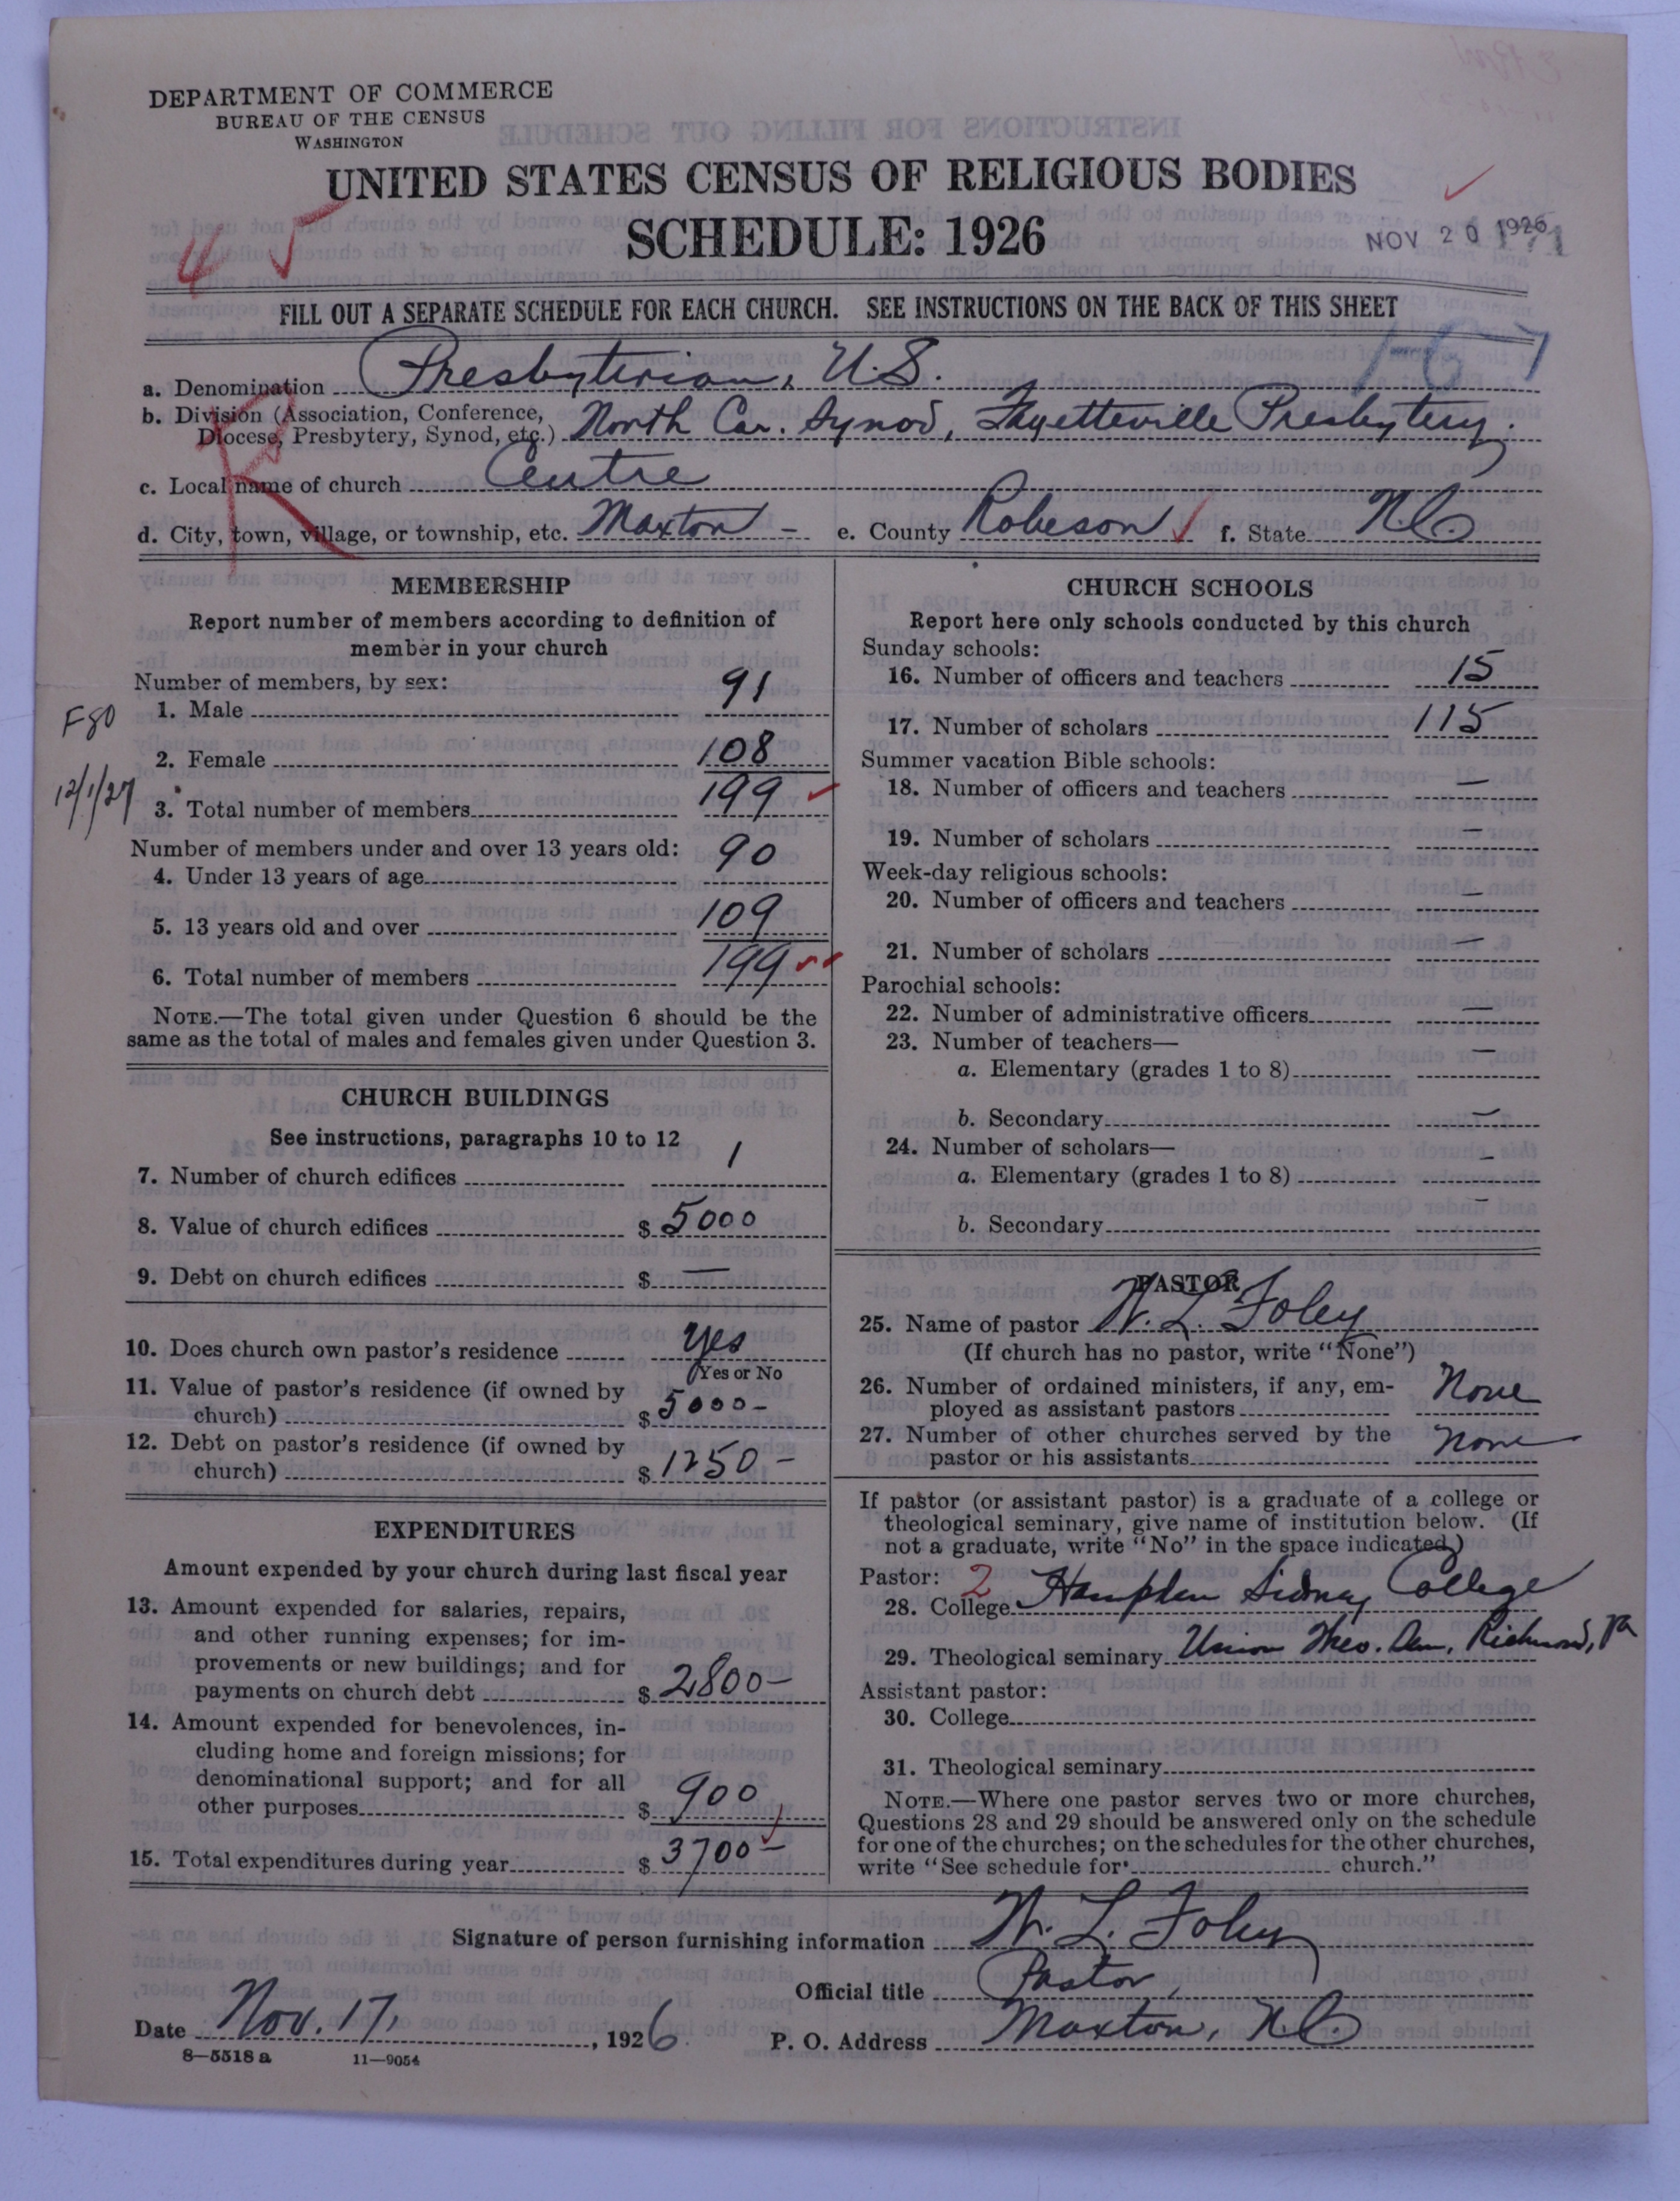 DEPARTMENT OF COMMERCE
BUREAU OF THE CENSUS
WASHINGTON
UNITED STATES CENSUS OF RELIGIOUS BODIES
SCHEDULE: 1926
NOV 20 1926
FILL OUT A SEPARATE SCHEDULE FOR EACH CHURCH. SEE INSTRUCTIONS ON THE BACK OF THIS SHEET
1-67
a. Denomination Presbyterian, U.S.
b. Division (Association, Conference,
Diocese, Presbytery, Synod, etc.) North Car. Synod, Fayetteville Presbytery.
c. Local name of church Centre
d. City, town, village, or township, etc. Maxton - e. County Robeson f. State N.C.
R
MEMBERSHIP
Report number of members according to definition of
member in your church
Number of members, by sex:
1. Male 91
F80
2. Female 108
12/1/27
3. Total number of members 199
Number of members under and over 13 years old:
4. Under 13 years of age 90
5. 13 years old and over 109
6. Total number of members 199
NOTE.—The total given under Question 6 should be the
same as the total of males and females given under Question 3.
CHURCH BUILDINGS
See instructions, paragraphs 10 to 12
7. Number of church edifices 1
8. Value of church edifices $ 5000
9. Debt on church edifices $ —
10. Does church own pastor's residence yes
Yes or No
11. Value of pastor's residence (if owned by
church) $ 5000-
12. Debt on pastor's residence (if owned by
church) $ 1250-
EXPENDITURES
Amount expended by your church during last fiscal year
13. Amount expended for salaries, repairs,
and other running expenses; for im-
provements or new buildings; and for
payments on church debt $ 2800-
14. Amount expended for benevolences, in-
cluding home and foreign missions; for
denominational support; and for all
other purposes $ 900
15. Total expenditures during year $ 3700-
CHURCH SCHOOLS
Report here only schools conducted by this church
Sunday schools:
16. Number of officers and teachers 15
17. Number of scholars 115
Summer vacation Bible schools:
18. Number of officers and teachers —
19. Number of scholars —
Week-day religious schools:
20. Number of officers and teachers —
21. Number of scholars —
Parochial schools:
22. Number of administrative officers —
23. Number of teachers—
a. Elementary (grades 1 to 8) —
b. Secondary —
24. Number of scholars—
a. Elementary (grades 1 to 8) —
b. Secondary —
PASTOR
25. Name of pastor W. L. Foley
(If church has no pastor, write "None")
26. Number of ordained ministers, if any, em-
ployed as assistant pastors None
27. Number of other churches served by the
pastor or his assistants None
If pastor (or assistant pastor) is a graduate of a college or
theological seminary, give name of institution below. (If
not a graduate, write "No" in the space indicated.)
Pastor: 2
28. College Hampden Sidney College
29. Theological seminary Union Theo. Sem. Richmond, Va
Assistant pastor:
30. College
31. Theological seminary
NOTE.—Where one pastor serves two or more churches,
Questions 28 and 29 should be answered only on the schedule
for one of the churches; on the schedules for the other churches,
write "See schedule for church."
Signature of person furnishing information W. L. Foley
Official title Pastor,
Date Nov. 17, 1926. P. O. Address Maxton, N.C.
8—5518 a 11—9054